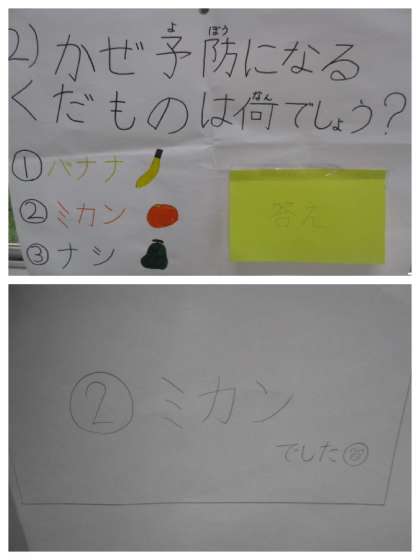 2) かぜ予防になる
よ ぼう
くだものは何でしょう?
なん
① バナナ
② ミカン
③ ナシ
答え
② ミカン
でした